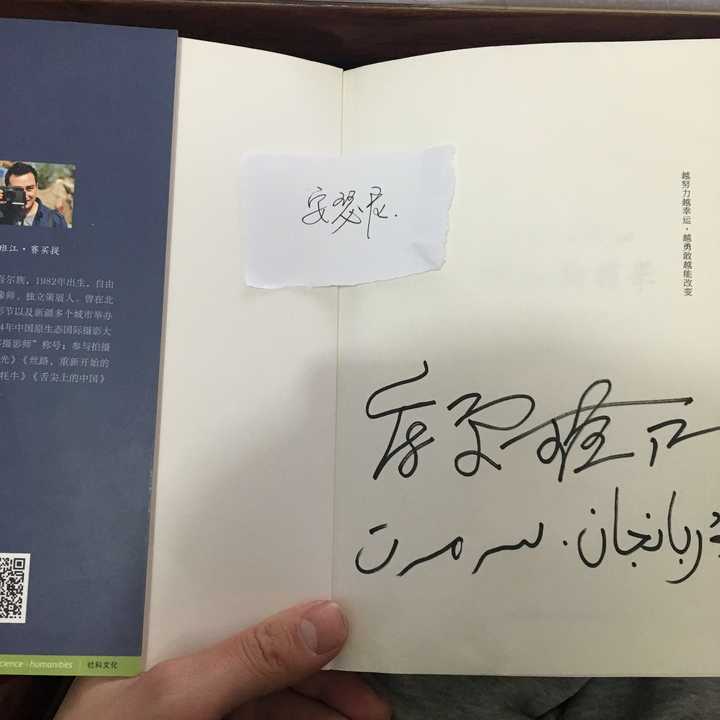 班江·赛买提
尔族，1982年出生，自由
像师，独立策展人，曾在北
影节以及新疆多个城市举办
4年中国原生态国际摄影大
摄影师”称号；参与拍摄
光》《丝路，重新开始的
牦牛》《舌尖上的中国》
science · humanities | 社科文化
越努力越幸运·越勇敢越能改变
库尔班江